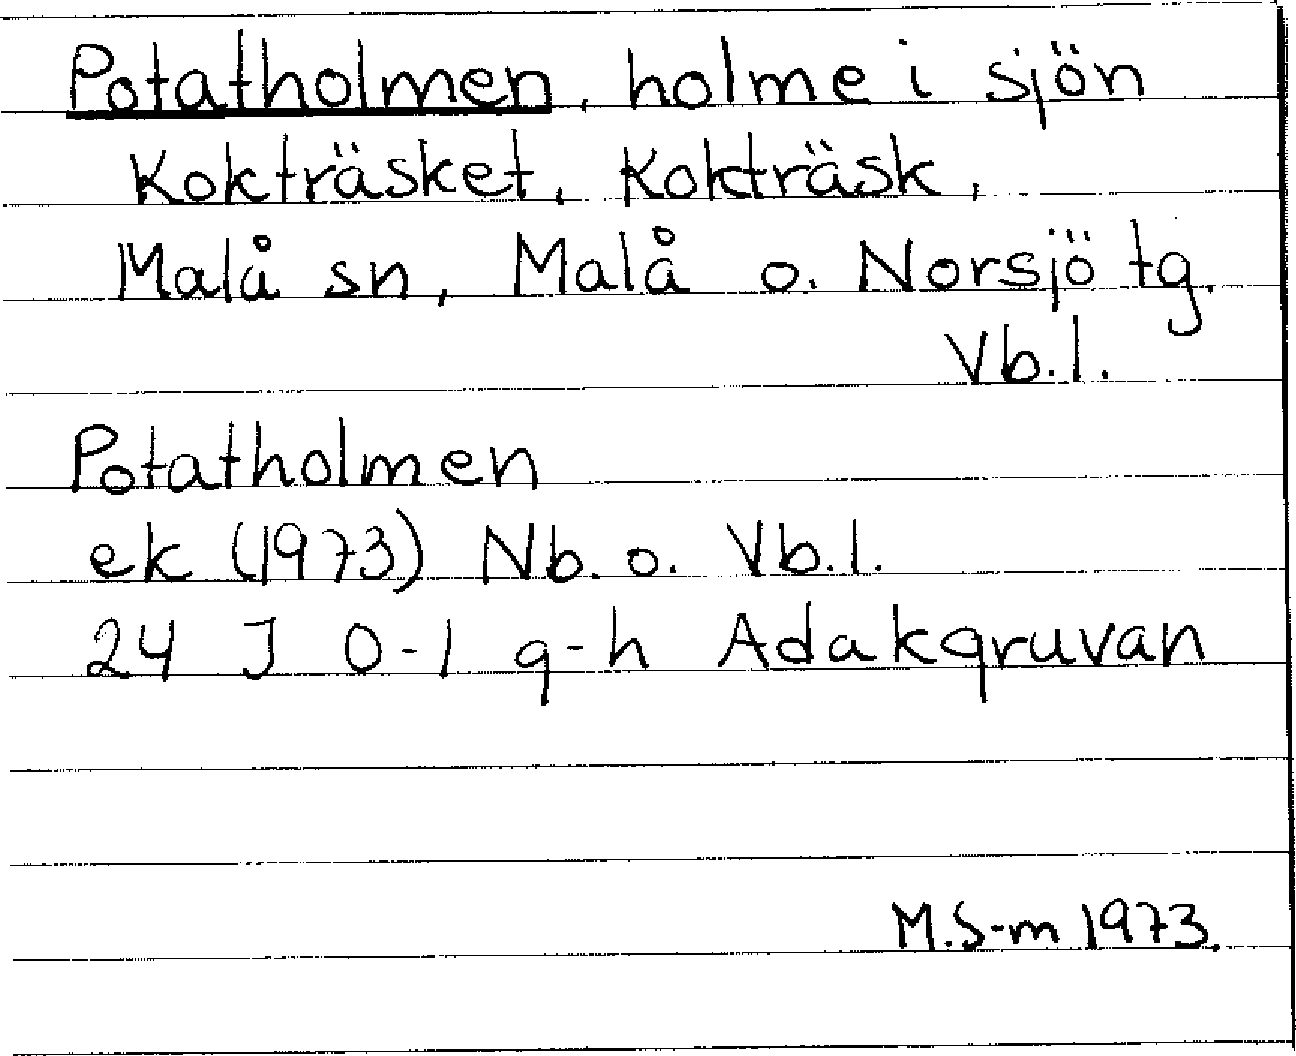 Potatholmen, holme i sjön
Kokträsket, Kokträsk,
Malå sn, Malå o. Norsjö tg.
Vb.l.
Potatholmen
ek (1973) Nb. o. Vb.l.
24 J 0-1 g-h Adakgruvan
M.S-m 1973.